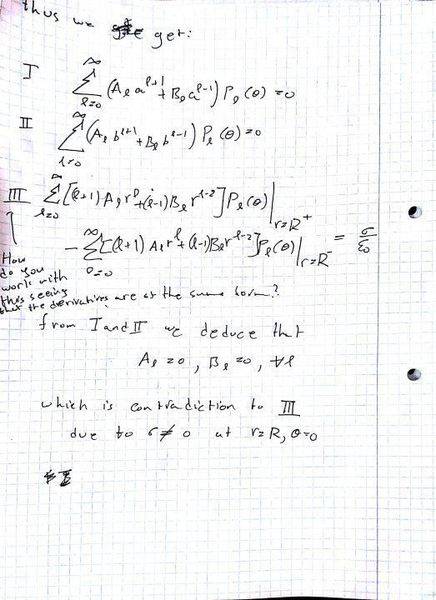 thus we get:
I ∞ Σ l=0 (A_l a^{l+1} + B_l a^{l-1}) P_l(θ) = 0
II ∞ Σ l=0 (A_l b^{l+1} + B_l b^{l-1}) P_l(θ) = 0
III ∞ Σ l=0 [(l+1) A_l r^l + (l-1) B_l r^{l-2}] P_l(θ) | r=R^+
- ∞ Σ l=0 [(l+1) A_l r^l + (l-1) B_l r^{l-2}] P_l(θ) | r=R^- = σ/ε_0
How
do you
work with
this seeing
that the derivatives are at the same form?
from I and II we deduce that
A_l = 0, B_l = 0, ∀l
which is contradiction to III
due to σ ≠ 0 at r=R, θ=0